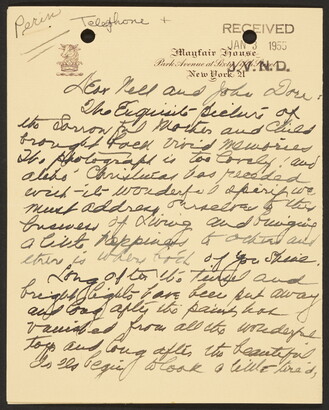 Perin
Telephone +
RECEIVED
JAN 3 1955
J.V.N.D.
Mayfair House
Park Avenue at Sixty-fifth
New York, 21
Dear Nell and John Dore:
The Exquisite picture of
the Sorrowful Mother and Child
brought back vivid memories
The photograph is too lovely! and
alas! Christmas has receded
with its wonderful spirit, we
must address ourselves to the
business of Living and bringing
a little happiness to others and
there is where both of you Shine.
Long after the tinsel and
bright lights have been put away
and long after the paint has
vanished from all the wonderful
toys and long after the beautiful
begins to look a little tired,